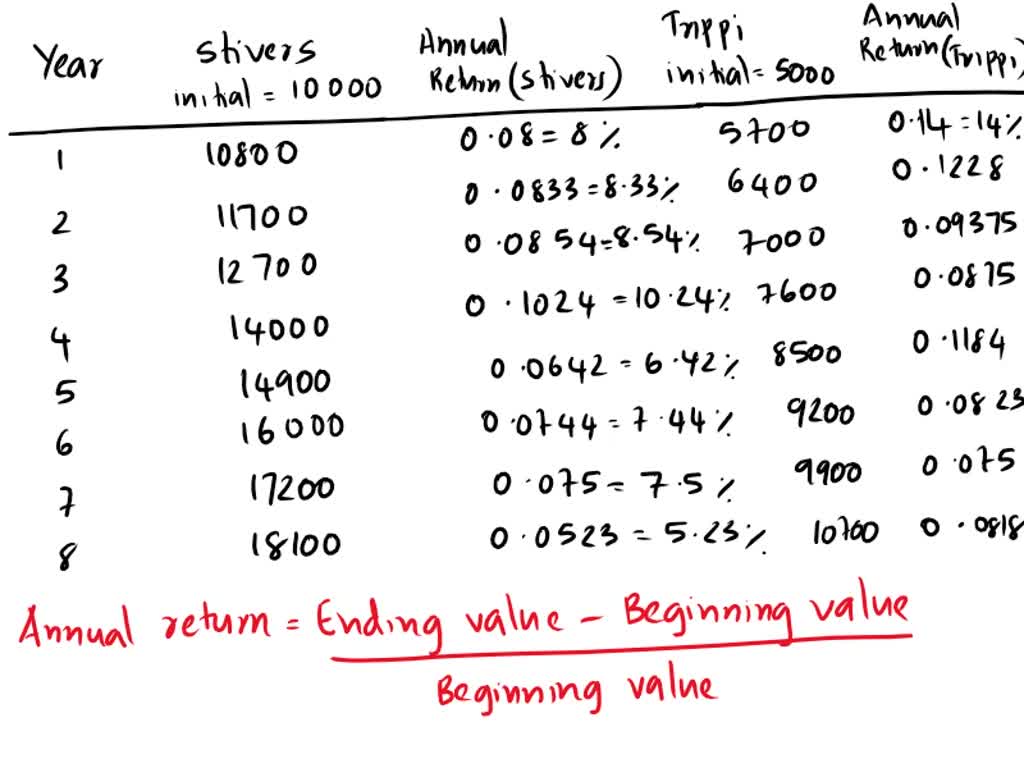 Year stivers initial = 10000 Annual Return (stivers) Trippi initial = 5000 Annual Return (Trippi)
1 10800 0.08 = 8% 5700 0.14 = 14%
2 11700 0.0833 = 8.33% 6400 0.1228
3 12700 0.0854 = 8.54% 7000 0.09375
4 14000 0.1024 = 10.24% 7600 0.0875
5 14900 0.0642 = 6.42% 8500 0.1184
6 16000 0.0744 = 7.44% 9200 0.0823
7 17200 0.075 = 7.5% 9900 0.075
8 18100 0.0523 = 5.23% 10700 0.0818
Annual return = Ending value - Beginning value
Beginning value